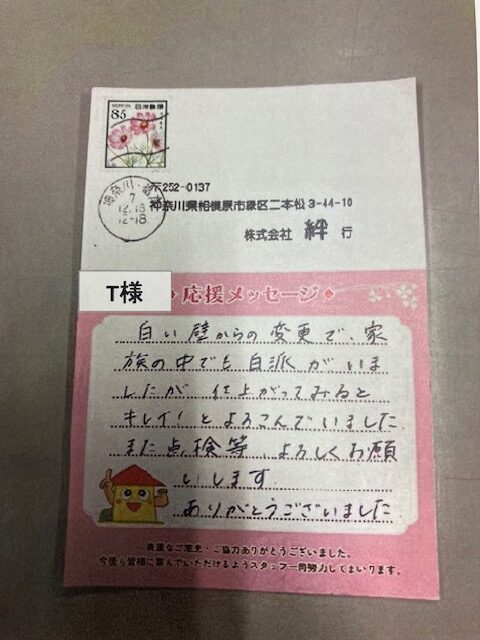 NIPPON 日本郵便
85
神奈川・相
7
12.13
12-18
〒252-0137
神奈川県相模原市緑区二本松3-44-10
株式会社 絆 行
T様
応援メッセージ
白い壁からの変更で、家
族の中でも白派がいま
したが 仕上がってみると
キレイ!とよろこんでいました
また点検等 よろしくお願
いします
ありがとうございました
貴重なご意見・ご協力ありがとうございました。
今後も皆様に喜んでいただけるようスタッフ一同努力してまいります。